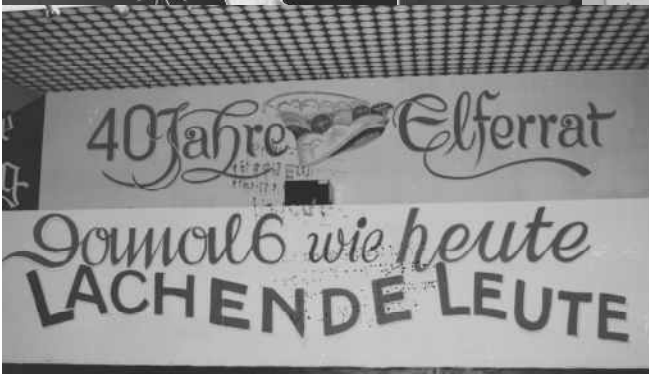 40 Jahre Elferrat
Damals wie heute
LACHENDE LEUTE